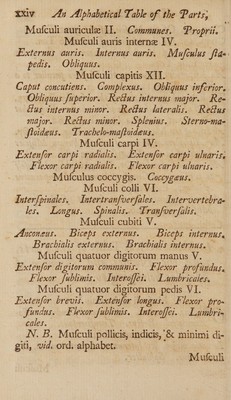 xxiv An Alphabetical Table of the Parts,
Muſculi auriculæ II. Communes. Proprii.
Muſculi auris internæ IV.
Externus auris. Internus auris. Muſculus ſta-
pedis. Obliquus.
Muſculi capitis XII.
Caput concutiens. Complexus. Obliquus inferior.
Obliquus ſuperior. Rectus internus major. Re-
ctus internus minor. Rectus lateralis. Rectus
major. Rectus minor. Splenius. Sterno-ma-
ſtoidæus. Trachelo-maſtoidæus.
Muſculi carpi IV.
Extenſor carpi radialis. Extenſor carpi ulnaris.
Flexor carpi radialis. Flexor carpi ulnaris.
Muſculus coccygis. Coccygæus.
Muſculi colli VI.
Interſpinales. Intertranſverſales. Intervertebra-
les. Longus. Spinalis. Tranſverſalis.
Muſculi cubiti V.
Anconæus. Biceps externus. Biceps internus.
Brachialis externus. Brachialis internus.
Muſculi quatuor digitorum manus V.
Extenſor digitorum communis. Flexor profundus.
Flexor ſublimis. Interoſſei. Lumbricales.
Muſculi quatuor digitorum pedis VI.
Extenſor brevis. Extenſor longus. Flexor pro-
fundus. Flexor ſublimis. Interoſſei. Lumbri-
cales.
N. B. Muſculi pollicis, indicis, & minimi di-
giti, vid. ord. alphabet.
Muſculi